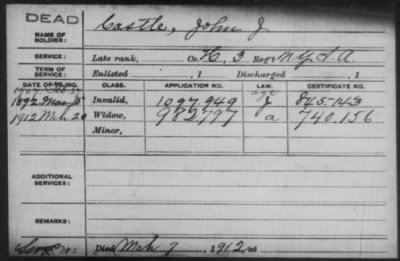 DEAD
NAME OF SOLDIER: Castle, John J
SERVICE: Late rank, Co. H, 3 Reg't N.Y.L.A
TERM OF SERVICE: Enlisted , 1 Discharged , 1
DATE OF FILING. CLASS. APPLICATION NO. LAW. CERTIFICATE NO.
age
Invalid, 1097.949 J 845.143
1912 Mch 20 Widow, 982797 a 740.156
Minor,
ADDITIONAL SERVICES:
REMARKS:
Died Mch 7, 1912, at